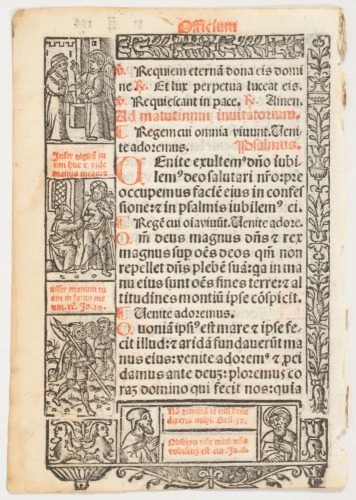 Officium
℣. Requiem eternā dona eis domi
ne ℟. Et lux perpetua luceat eis.
℣. Requiescant in pace. ℟. Amen.
Ad matutinum inuitatorium.
Regem cui omnia viuunt. Uenite
adoremus. Psalmus.
Uenite exultemꝰ dño iubi
lemꝰ deo salutari nr̄o: pre
occupemus faciē eius in confes
sione: et in psalmis iubilemꝰ ei.
Regē cui oīa viuūt. Uenite adore.
Qm̄ deus magnus dñs et rex
magnus sup oēs deos qm̄ non
repellet dñs plebē suā: qa in ma
nu eius sunt oēs fines terre: et al
titudines montiū ipse cōspicit.
Uenite adoremus.
Quoniā ipsiꝰ est mare et ipse fe
cit illud: et aridā fundauerūt ma
nus eius: venite adoremꝰ et ꝓci
damus ante deuꝫ: ploremus co
raꝫ domino qui fecit nos: quia
Infer digitū tu
um huc et vide
manus meas